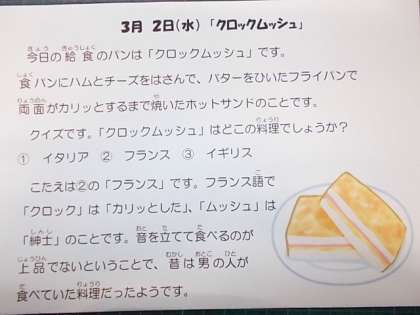 3月 2日(水) 「クロックムッシュ」
今日の給食のパンは「クロックムッシュ」です。
食パンにハムとチーズをはさんで、バターをひいたフライパンで
両面がカリッとするまで焼いたホットサンドのことです。
クイズです。「クロックムッシュ」はどこの料理でしょうか？
① イタリア ② フランス ③ イギリス
こたえは②の「フランス」です。フランス語で
「クロック」は「カリッとした」、「ムッシュ」は
「紳士」のことです。音を立てて食べるのが
上品でないということで、昔は男の人が
食べていた料理だったようです。